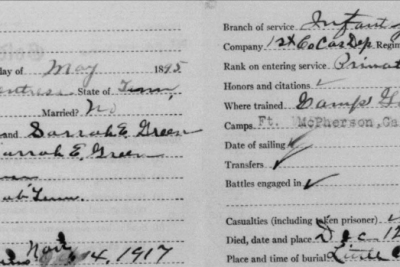 day of May 1895
State of Tenn,
Married? No
and Sarrah E. Green
Sarrah E. Green
Tenn
Nov 14, 1917
Branch of service
Company 1st Co Cas Dep. Regim
Rank on entering service Private
Honors and citations ✓
Where trained Camps
Camps Ft. McPherson, Ga
Date of sailing ✓
Transfers ✓
Battles engaged in ✓
Casualties (including taken prisoner) ✓
Died, date and place Dec 12
Place and time of burial Little